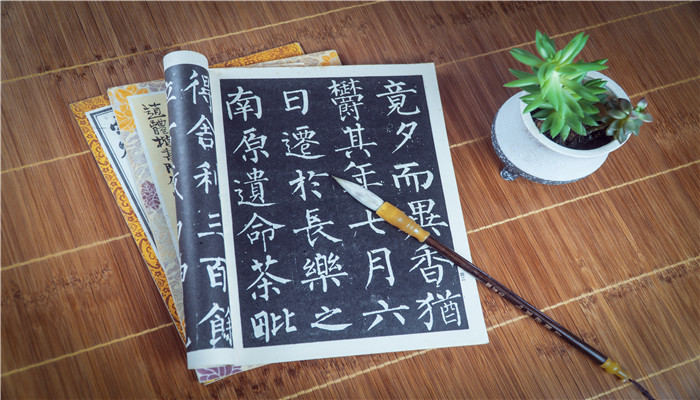 竟夕而異香猶
欝其年七月六
日遷於長樂之
南原遺命荼毗
得舍利三百餘